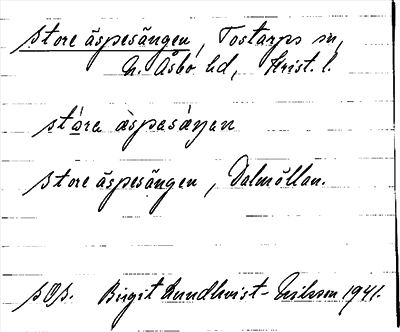 Store äspesängen, Tostarps sn,
N. Åsbo hd, Krist. l.
stóra àspasáŋen
Store äspesängen, Dalmöllan.
sOs. Birgit Lundkvist-Nilsson 1941.